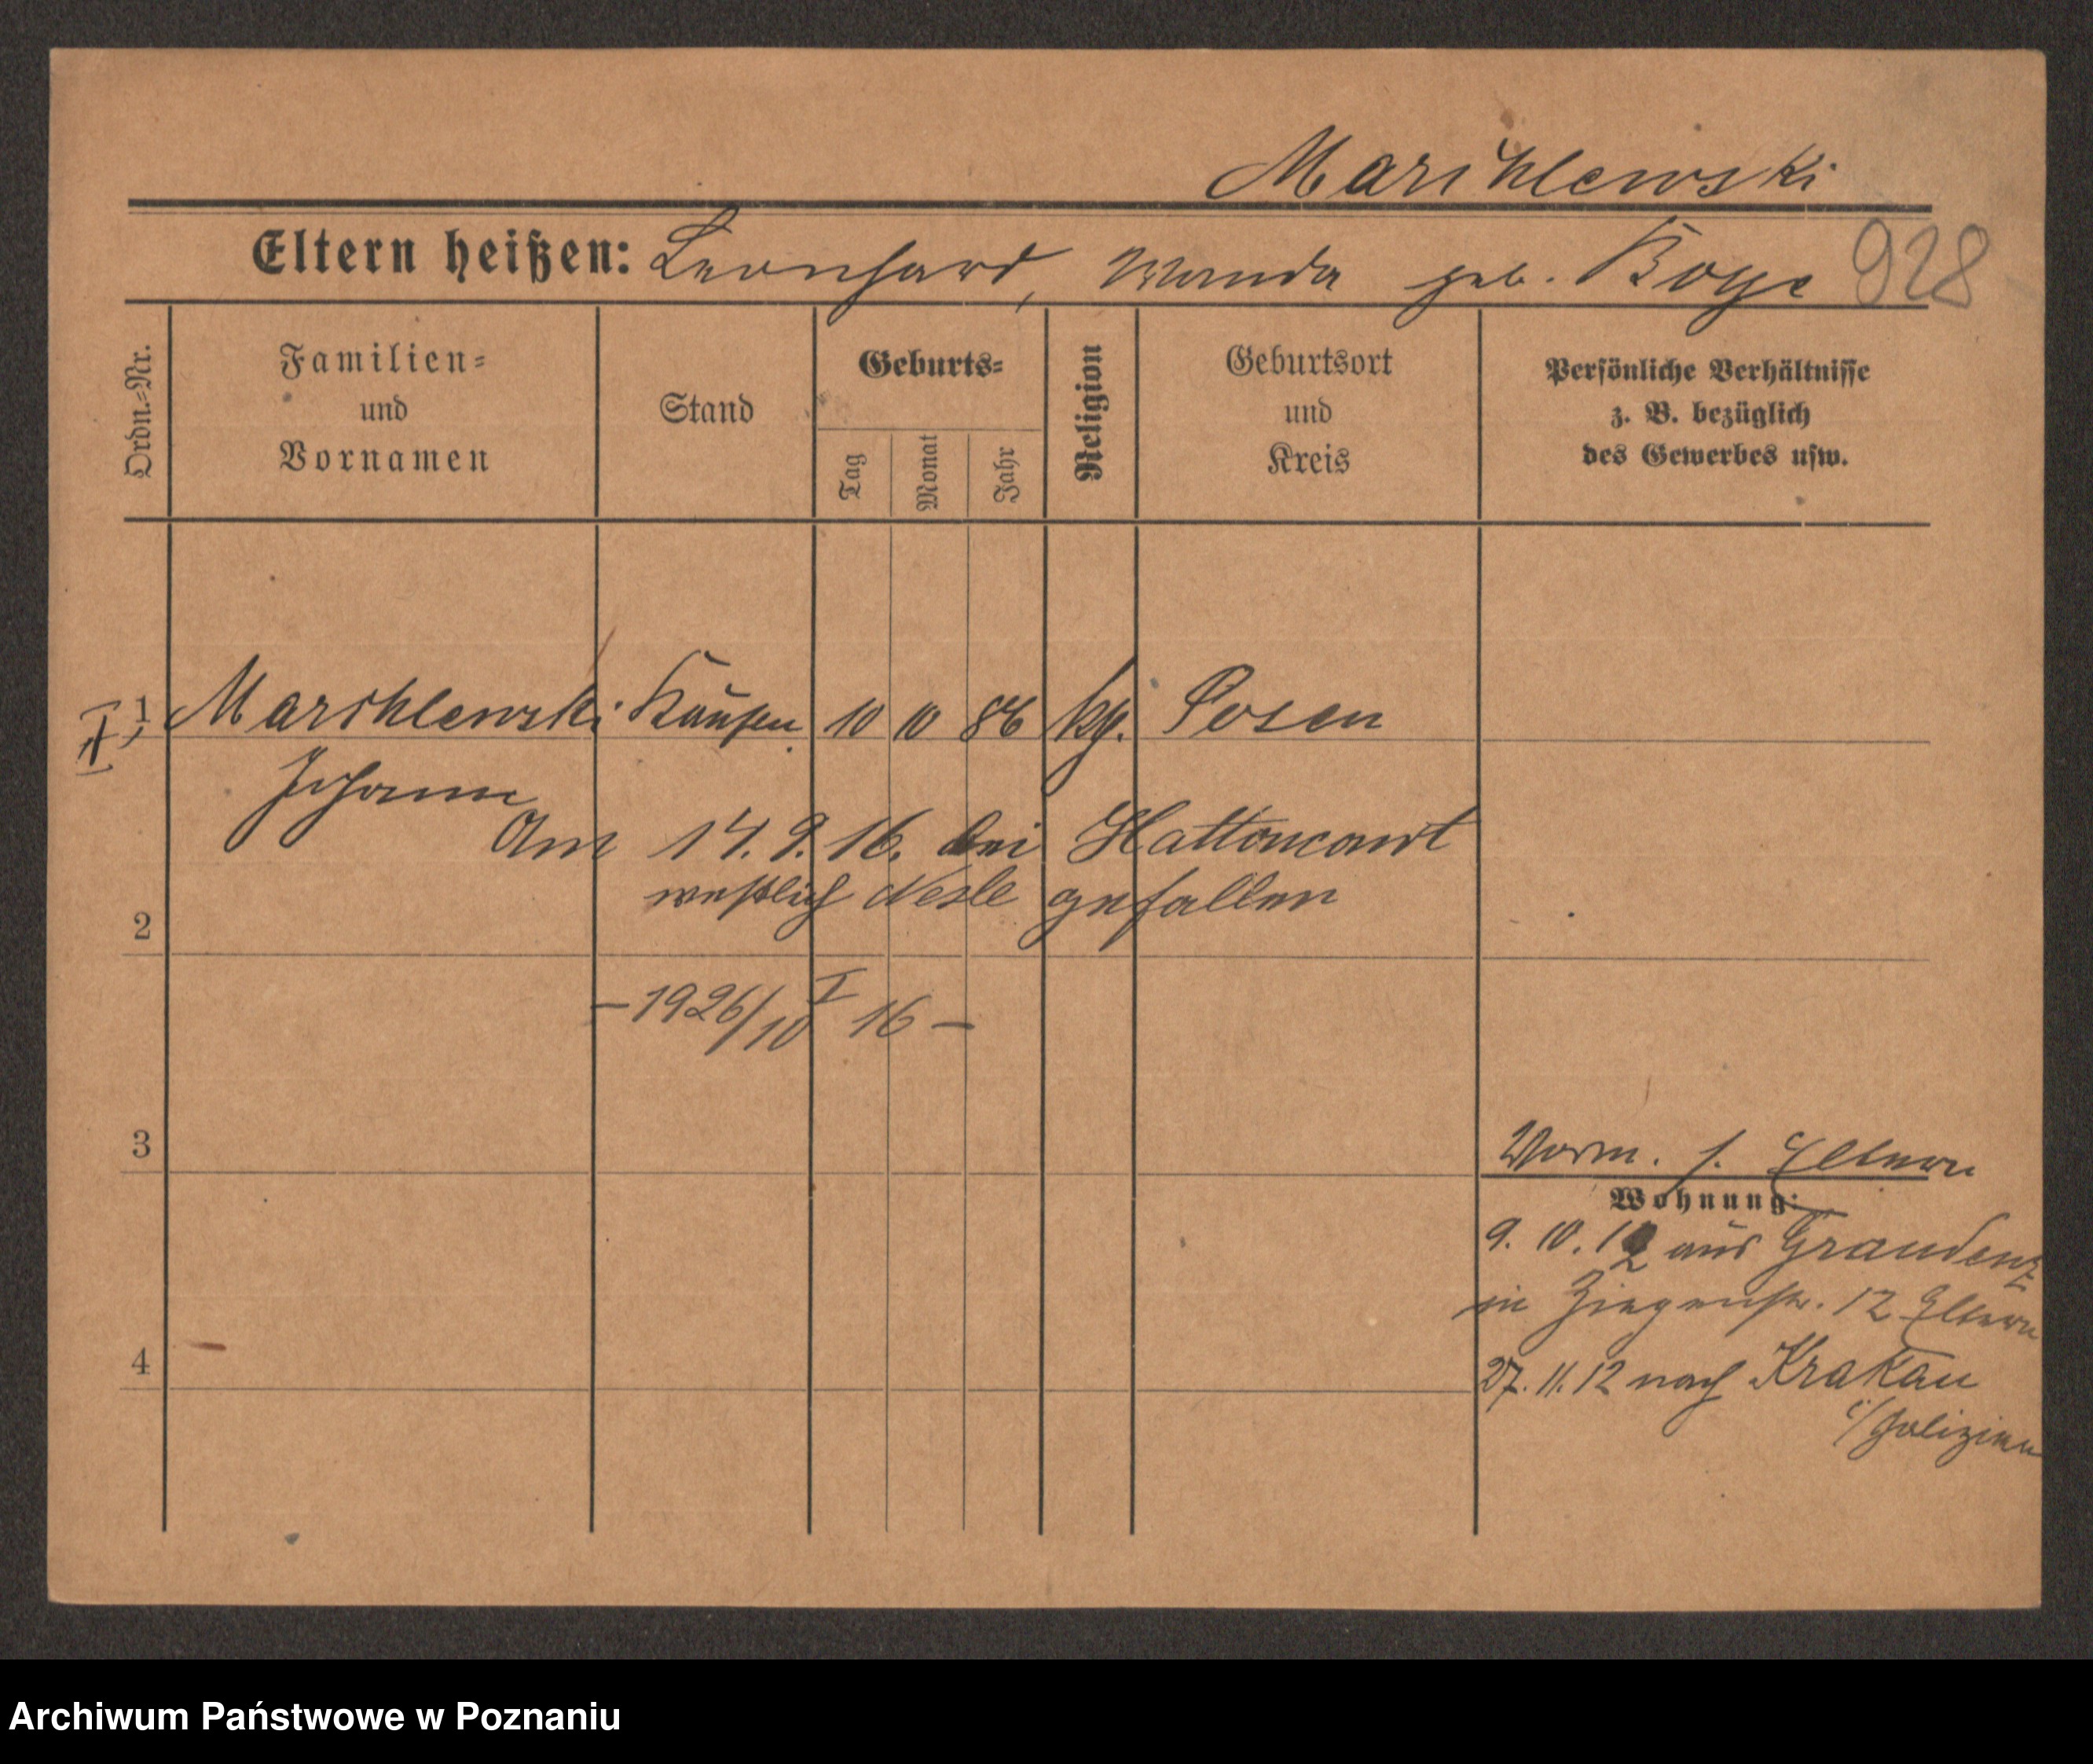 Marchlewski
Eltern heißen: Leonhard, Wanda geb. Boye 928
Ordn.-Nr.
Familien-
und
Vornamen
Stand
Geburts-
Tag
Monat
Jahr
Religion
Geburtsort
und
Kreis
Persönliche Verhältnisse
z. B. bezüglich
des Gewerbes usw.
1 Marchlewski Kaufm. 10 10 86 Posen
Johann
Am 14. 9. 16. bei Hattoncourt
westlich Nesle gefallen
2
– 1926/10 I 16 –
3
Vorm. s. Eltern
Wohnung:
9. 10. 12 aus Graudenz
in Ziegenstr. 12 Eltern
4
27. 11. 12 nach Krakau
i/Galizien
Archiwum Państwowe w Poznaniu